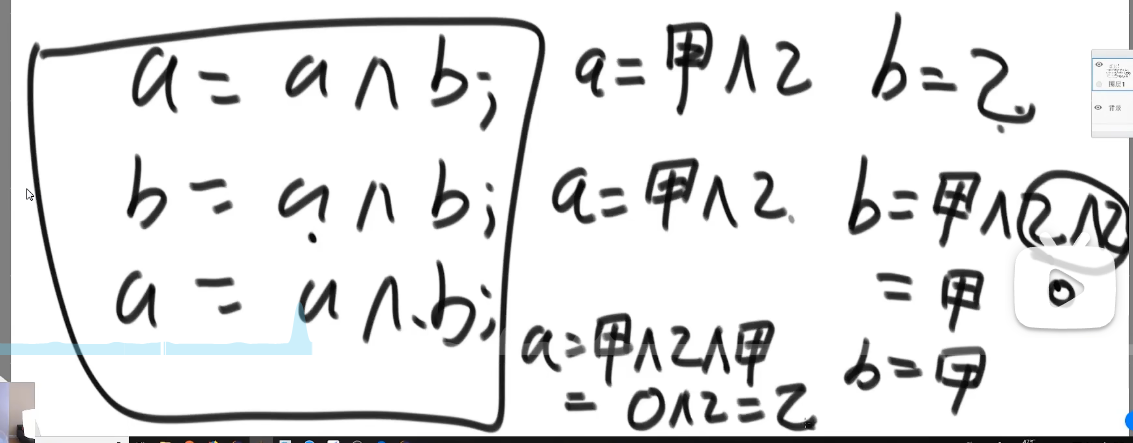 a = a ∧ b;
b = a ∧ b;
a = a ∧ b;
a = 甲 ∧ 乙
b = 乙
a = 甲 ∧ 乙
b = 甲 ∧ 乙 ∧ 乙
= 甲
0
a = 甲 ∧ 乙 ∧ 甲
= 0 ∧ 乙 = 乙
b = 甲
图层1
背景